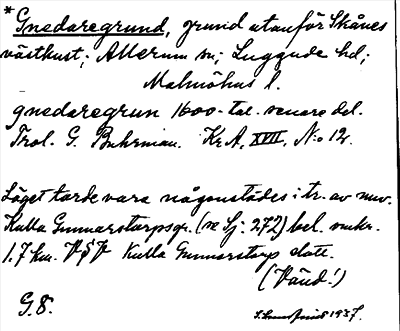 * Gnedaregrund, grund utanför Skånes
västkust; Allerum sn; Luggude hd;
Malmöhus l.
gnedaregrun 1600-tal. senare del.
Trol. G. Buhrman. KrA, XVII, No 12.
Läget torde vara någonstädes i tr. av nuv.
Kulla Gunnarstorpsgr. (se Sj: 272) bel. omkr.
1.7 km. VSV Kulla Gunnarstorp slott.
(Vänd!)
G.8.
1937.